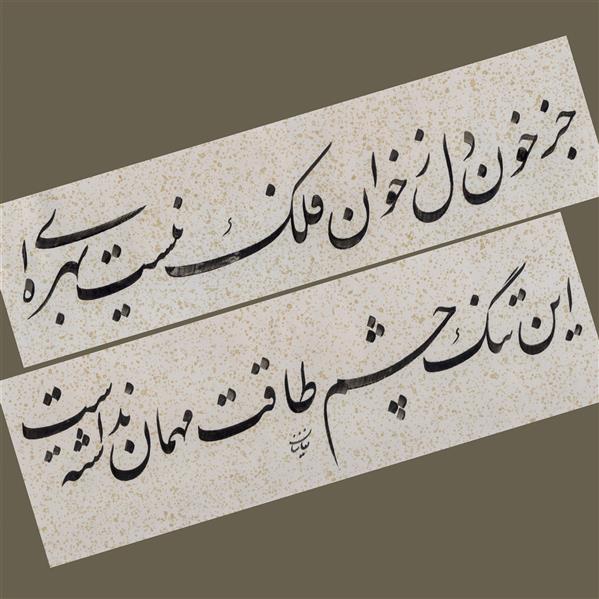 جز خون دل ز خوان فلک نیست بهره‌ای
این تنگ چشم طاقت مهمان نداشته ست